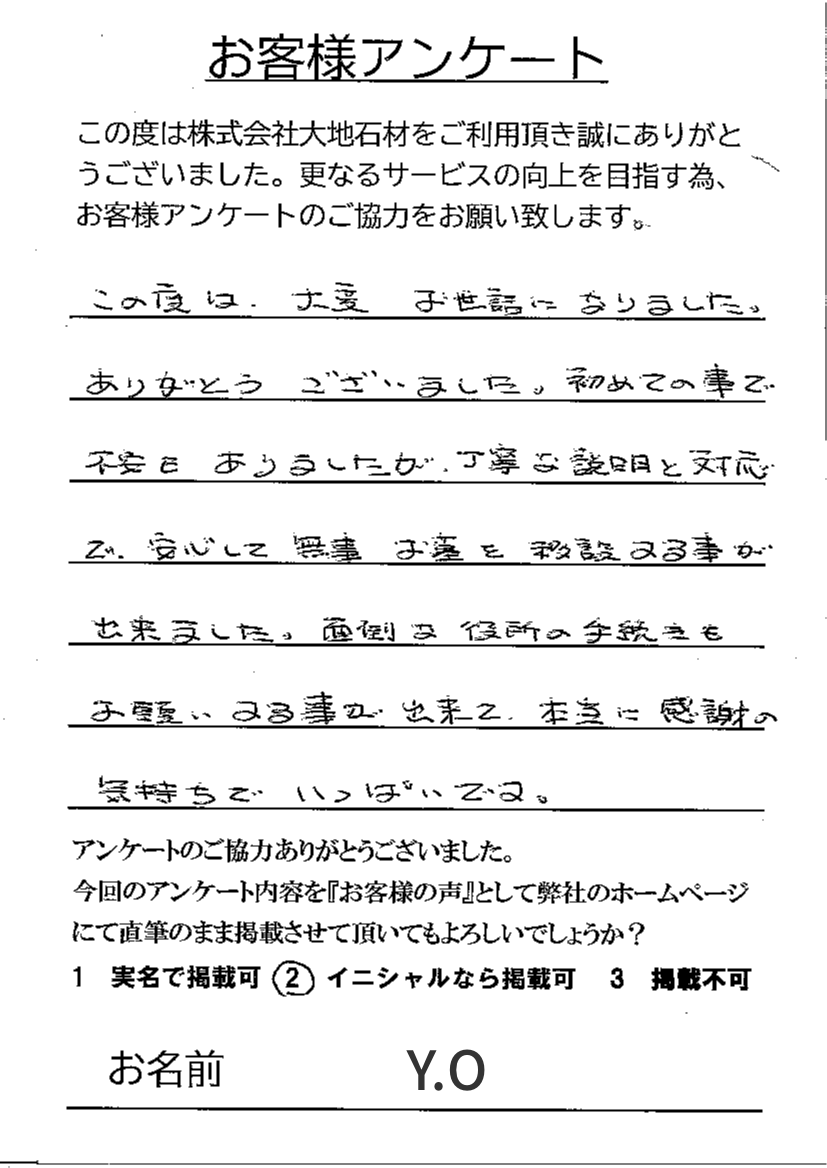 お客様アンケート
この度は株式会社大地石材をご利用頂き誠にありがと
うございました。更なるサービスの向上を目指す為、
お客様アンケートのご協力をお願い致します。
この度は、大変 お世話になりました。
ありがとう ございました。初めての事で
不安も ありましたが、丁寧な説明と対応
で、安心して 無事 お墓を 移設する事が
出来ました。面倒な 役所の手続きも
お願い する事が 出来て、本当に 感謝の
気持ちで いっぱいです。
アンケートのご協力ありがとうございました。
今回のアンケート内容を『お客様の声』として弊社のホームページ
にて直筆のまま掲載させて頂いてもよろしいでしょうか？
1 実名で掲載可 ② イニシャルなら掲載可 3 掲載不可
お名前 Y.O